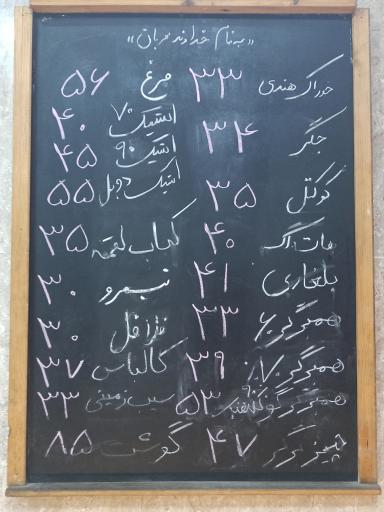 «به نام خداوند مهربان»
خوراک هندی ۳۳ مرغ ۵۶
جگر ۳۴ استیک ۷۰ ۴۰
استیک ۹۰ ۴۵
کوکتل ۳۵ استیک دوبل ۵۵
هات داگ ۴۰ کباب لقمه ۳۵
بلغاری ۴۱ نیمرو ۳۰
همبرگر ۶۰ ۳۳ فلافل ۳۰
همبرگر ۷۰٪ ۳۹ کالباس ۳۷
همبرگر ۹۰٪ ۵۳ سیب زمینی ۳۳
چیزبرگر ۴۷ گوشت ۸۵